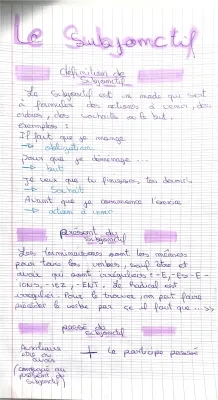 Le Subjonctif
définition du
subjonctif
Le Subjonctif est un mode qui sert
à formuler des actions à venir, des
ordres, des souhaits ou le but.
exemples :
Il faut que je mange
→ obligation
Pour que je déménage ...
→ but
Je veux que tu finisses ton devoir
→ Souhait
Avant que je commence l'exercice
→ action à venir
présent du
subjonctif
Les terminaisons sont les mêmes
pour tous les verbes, sauf être et
avoir qui sont irréguliers : -E, -ES -E -
IONS, -IEZ, -ENT. Le Radical est
irrégulier. Pour le trouver, on peut faire
précéder le verbe par « il faut que ... »
passé du
subjonctif
Auxiliaire
être ou
avoir
+ le participe passé
(conjugué au
présent du
subjonctif)